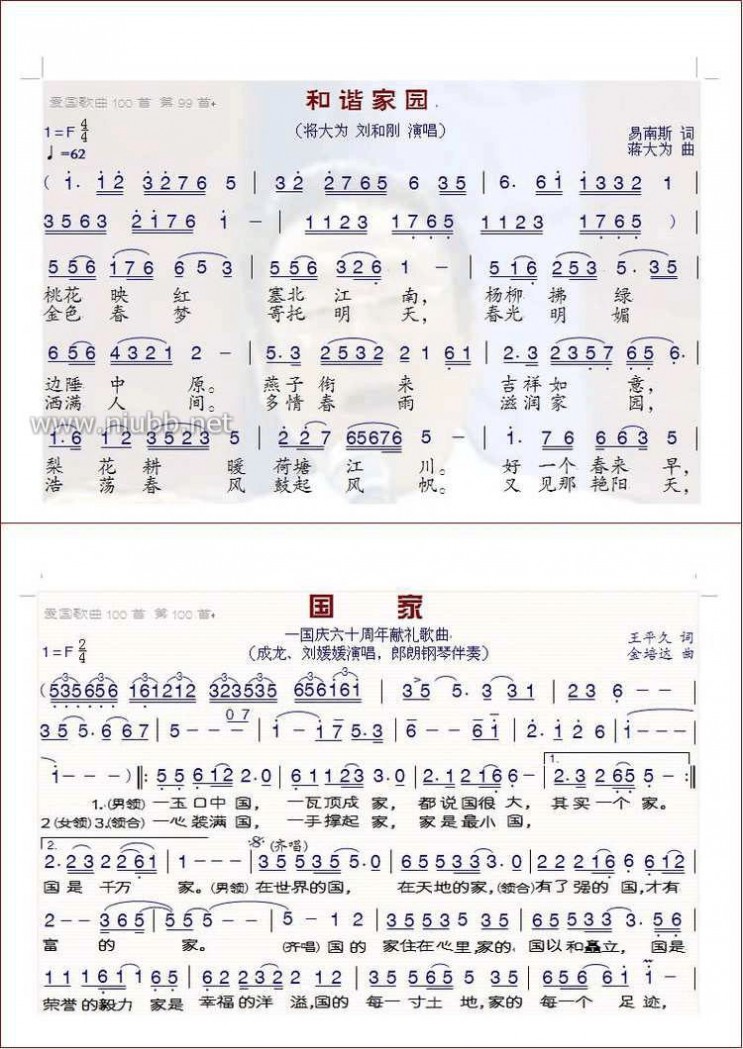 爱国歌曲100首 第99首
和谐家园
(将大为 刘和刚 演唱)
1=F 4/4
易南斯 词
♩=62
蒋大为 曲
( 1. 12 32 76 5 | 32 2765 6 35 | 6. 61 1332 1 |
3563 2176 1 - | 1123 1765 1123 1765 ) |
556 176 653 | 556 326 1 - | 516 253 5. 35 |
桃花 映 红 塞北 江 南, 杨柳 拂 绿
金色 春 梦 寄托 明 天, 春光 明 媚
656 4321 2 - | 5.3 2532 2 1 61 | 2.3 2357 65 6. |
边陲 中 原。 燕子 衔 来 吉祥 如 意,
洒满 人 间。 多情 春 雨 滋润 家 园,
www.niubb.net
1.6 123 2176 5 | 227 65676 5 - | 1. 76 663 5 |
梨 花 耕 暖 荷塘 江 川。 好 一个 春来 早,
浩 荡 春 风 鼓起 风 帆。 又 见那 艳阳 天,
爱国歌曲100首 第100首
国 家
—国庆六十周年献礼歌曲
王平久 词
1=F 2/4
(成龙、刘媛媛演唱,郎朗钢琴伴奏)
金培达 曲
( 535656 161212 | 323535 656161 | 35 5. 331 | 23 6 - - |
35 5. 667 | 5 - - - | 07 1 - 1 - | 1 - 17 5.3 | 6 - - 61 | 2.12 6 | 1 - - - |
1 - - - ) |: 55 612 2.0 | 611 23 3.0 | 2.12 16 6 - | 1. 2.32 265 5 - :|
1.(男领) 一玉口中 国, 一瓦顶成 家, 都说国很 大, 其实一个 家。
2(女领)3.(领合) 一心装满 国, 一手撑起 家, 家是最小 国,
2. (齐唱)
2.23 2261 | 1 - - - | 355 35 5.0 | 655 33 5.0 | 222 16 6616 |
国是 千万 家。(男领) 在世界的国, 在天地的家,(领合)有了强的 国,才有
2 - - 365 | 55 5 - - | 5 - 1 2 | 3535 535 | 6553 3 3.56 |
富 的 家。 (齐唱) 国的 家住在心里,家的 国以和矗立, 国是
111 61165 | 622322 12 | 3535 535 | 651615 5. |
荣誉的毅力 家是 幸福的洋 溢,国的 每一寸土 地,家的 每一个 足迹,